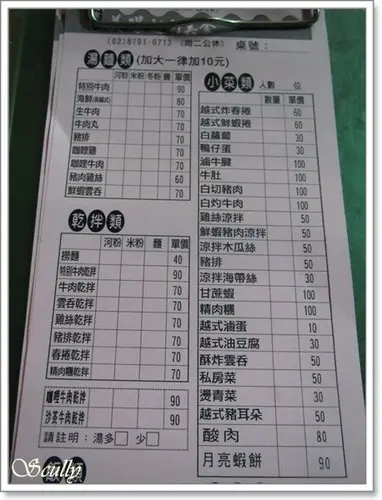 (02)8791-6713 (周二公休) 桌號：
湯麵類 (加大一律加10元)
河粉 米粉 冬粉 麵 單價
特別牛肉 90
海鮮 80
生牛肉 70
牛肉丸 70
豬排 70
咖哩雞 70
咖哩牛肉 70
豬肉雞絲 60
鮮蝦雲吞 70
乾拌類
河粉 米粉 麵 單價
撈麵 40
特別牛肉乾拌 90
牛肉乾拌 70
雲吞乾拌 70
雞絲乾拌 70
豬排乾拌 70
春捲乾拌 70
精肉糰乾拌 70
咖哩牛肉乾拌 90
沙茶牛肉乾拌 90
請註明：湯多□ 少□
小菜類 人數 位
數量 單價
越式炸春捲 60
越式鮮蝦捲 60
白蘿蔔 30
鴨仔蛋 30
滷牛腱 100
牛肚 100
白切豬肉 100
白灼牛肉 100
雞絲涼拌 50
鮮蝦豬肉涼拌 50
涼拌木瓜絲 50
豬排 50
涼拌海帶絲 30
甘蔗蝦 100
精肉糰 100
越式滷蛋 10
越式油豆腐 30
酥炸雲吞 50
私房菜 50
燙青菜 30
越式豬耳朵 50
酸肉 80
月亮蝦餅 90
Scully